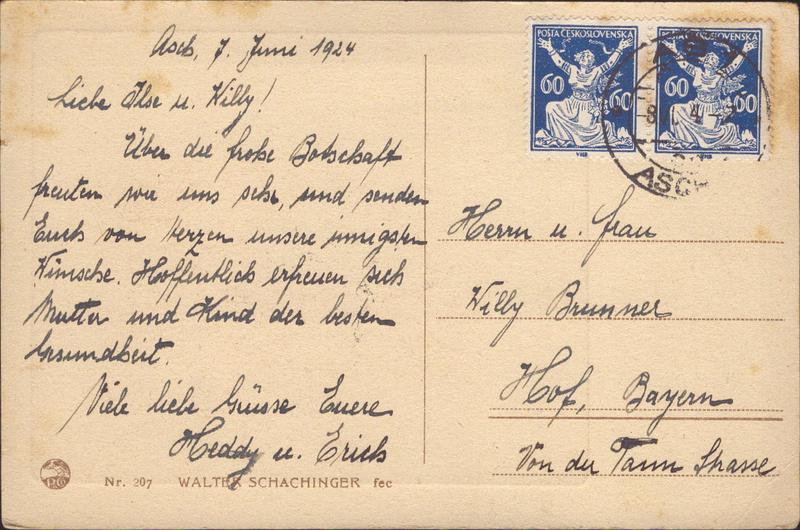 Asch, 7. Juni 1924
Liebe Ilse u. Willy!
Über die frohe Botschaft
freuten wir uns sehr, und senden
Euch von Herzen unsere innigsten
Wünsche. Hoffentlich erfreuen sich
Mutter und Kind der besten
Gesundheit.
Viele liebe Grüsse Euere
Heddy u. Erich
Nr. 207 WALTER SCHACHINGER fec
POŠTA ČESKOSLOVENSKA
60 60
POŠTA ČESKOSLOVENSKA
60 60
ASCH
Herrn u. Frau
Willy Brunner
Hof, Bayern
Von der Tann Strasse